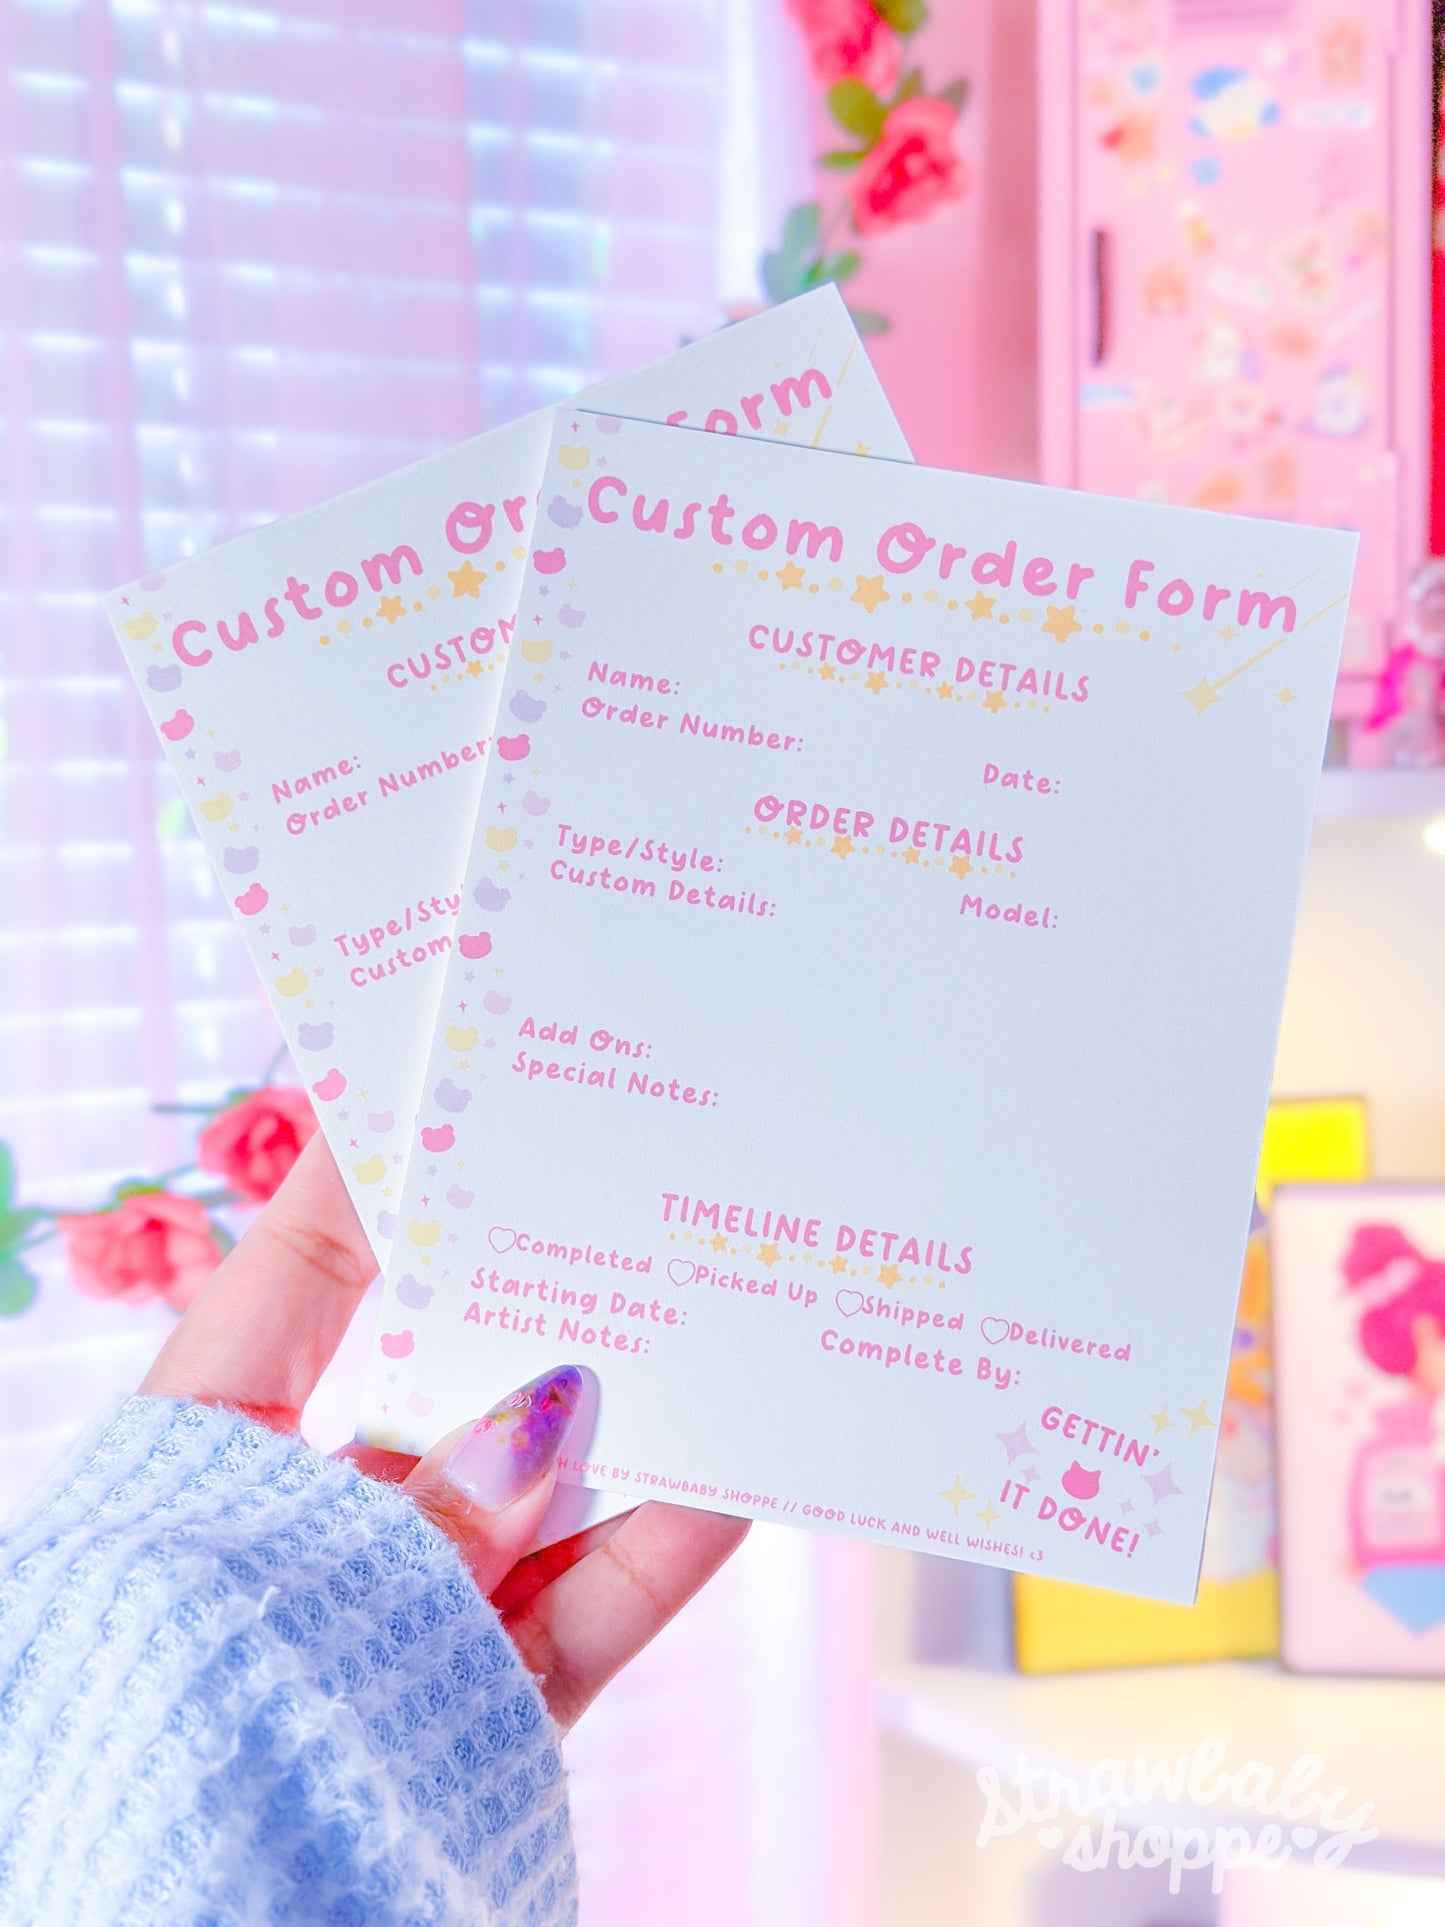 Form
Custom Or
CUSTOM
Name:
Order Number:
Type/Sty
Custom
Custom Order Form
CUSTOMER DETAILS
Name:
Order Number:
Date:
ORDER DETAILS
Type/Style:
Custom Details:
Model:
Add Ons:
Special Notes:
TIMELINE DETAILS
Completed Picked Up Shipped Delivered
Starting Date: Complete By:
Artist Notes:
GETTIN'
IT DONE!
LOVE BY STRAWBABY SHOPPE // GOOD LUCK AND WELL WISHES! <3
strawbaby
shoppe